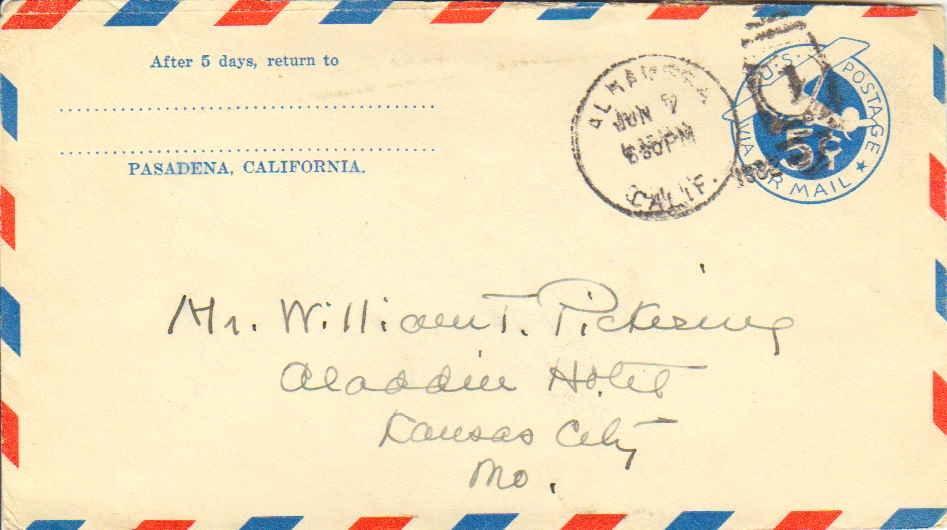 After 5 days, return to
PASADENA, CALIFORNIA.
ALHAMBRA
JUN 7
PM
CALIF.
1
U.S. POSTAGE
5¢
VIA AIR MAIL
Mr. William T. Pickering
Aladdin Hotel
Kansas City
Mo.